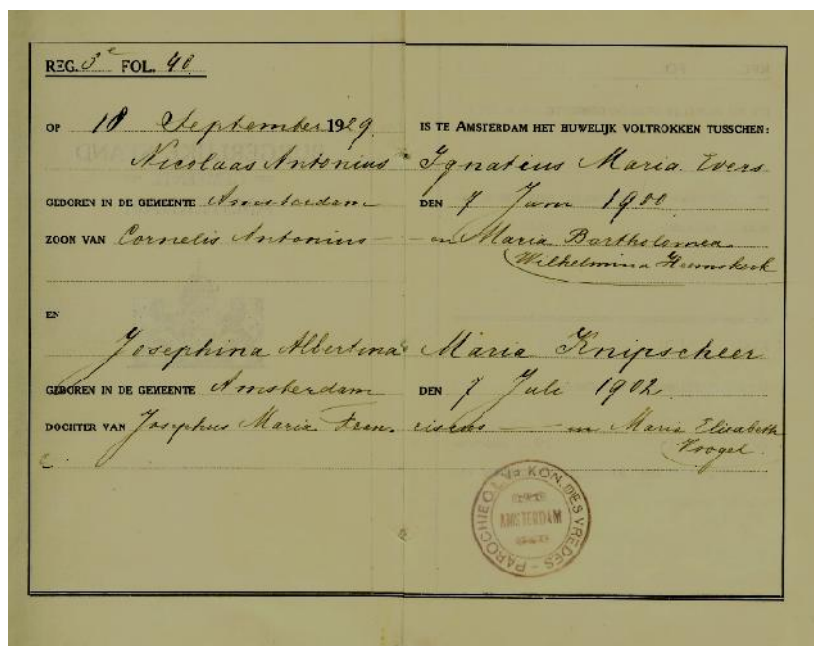 REG. 3e FOL. 40
OP 18 September 1929 IS TE AMSTERDAM HET HUWELIJK VOLTROKKEN TUSSCHEN:
Nicolaas Antonius Ignatius Maria Evers
GEBOREN IN DE GEMEENTE Amsterdam DEN 7 1900
ZOON VAN Cornelis Antonius — en Maria Bartholomea
Wilhelmina Heemskerk
EN
Josephina Albertina Maria Knipscheer
GEBOREN IN DE GEMEENTE Amsterdam DEN 7 Juli 1902
DOCHTER VAN Josephus Maria Fran- ciscus — en Maria Elisabeth
PAROCHIE O.L.VR. KON. DES VREDES -
AMSTERDAM